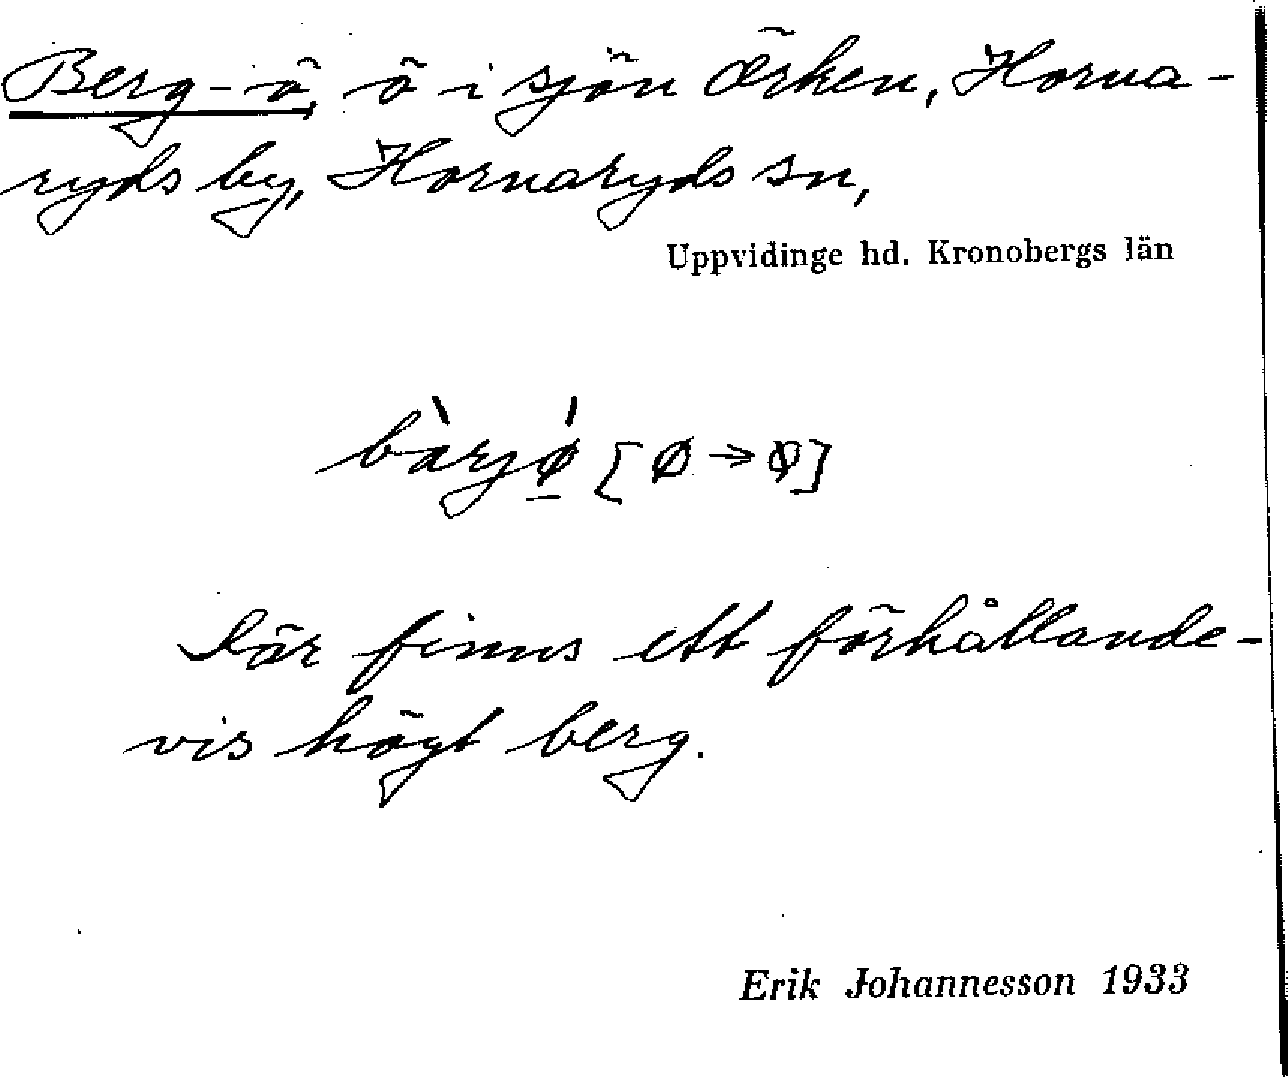 Berg-ö, ö i sjön Örken, Horna-
ryds by, Hornaryds sn,
Uppvidinge hd. Kronobergs län
bàrjǿ̱ [ø → ꞝ]
Där finns ett förhållande-
vis högt berg.
Erik Johannesson 1933